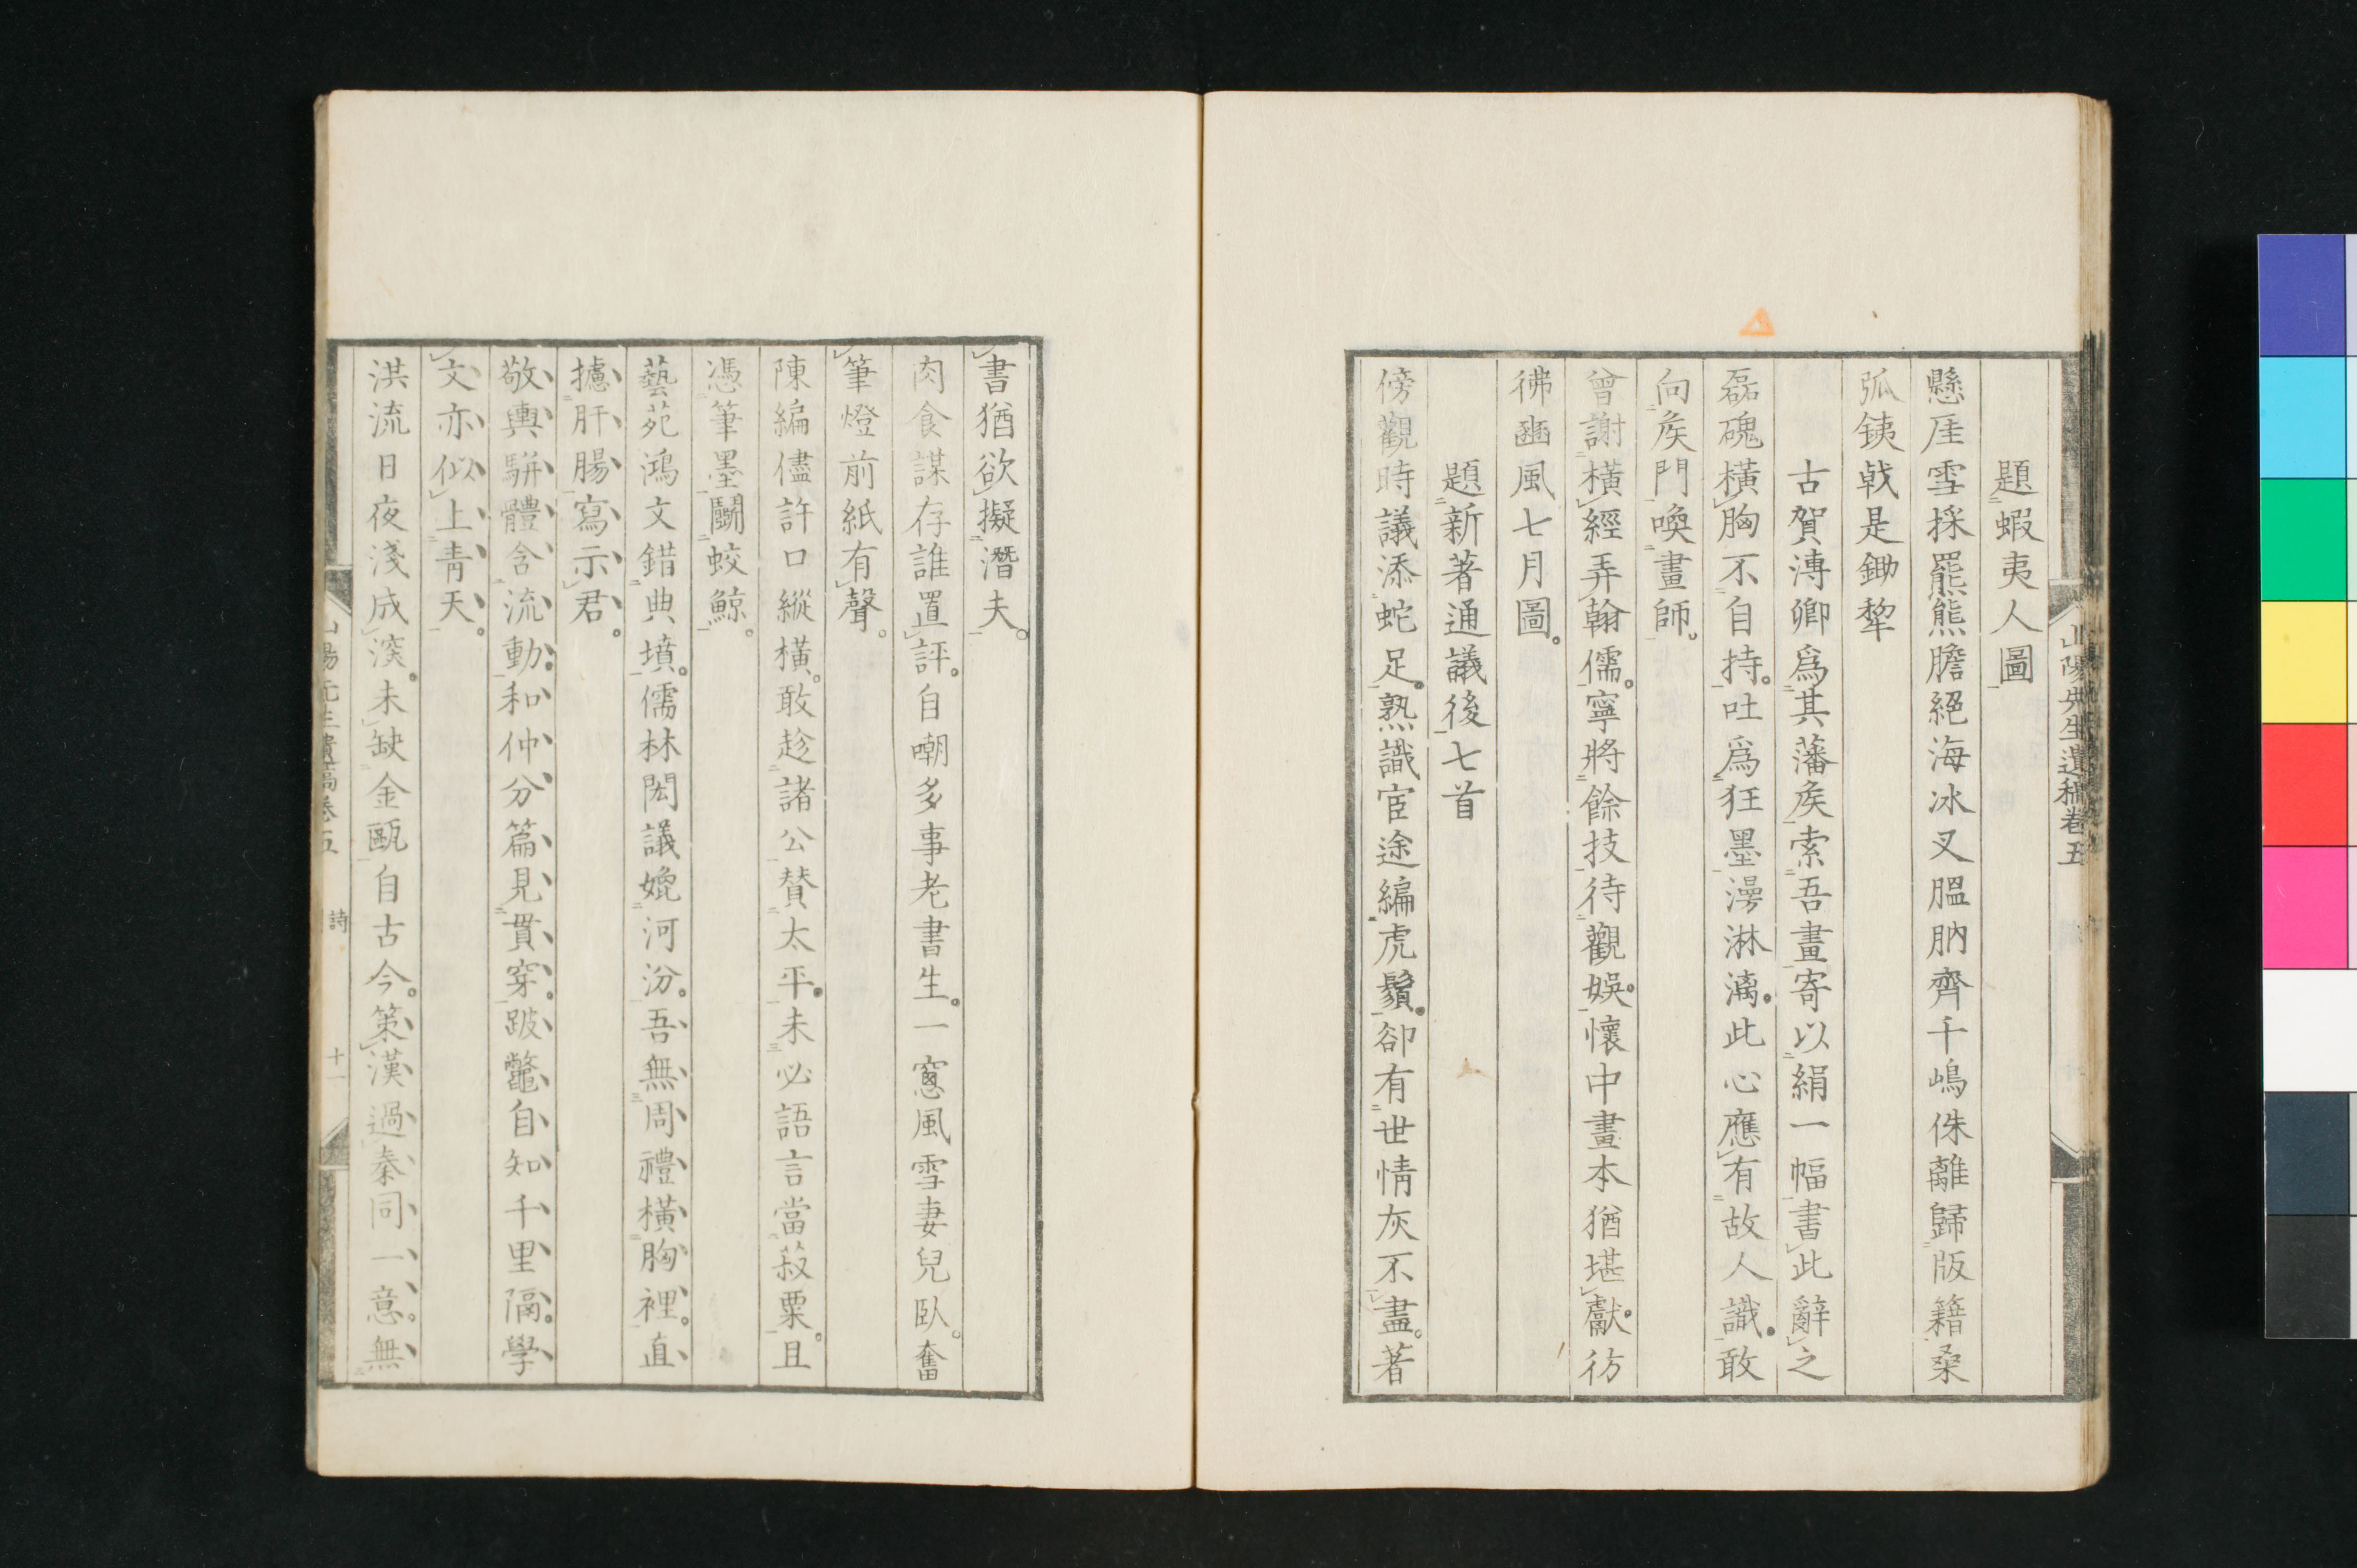 山陽先生遺稿卷五
題蝦夷人圖
懸厓雪採羆熊膽絕海冰叉膃肭齊千嶋侏離歸版籍桑
弧銕戟是鋤犂
古賀溥卿爲其藩矦索吾畫寄以絹一幅書此辭之
磊磈橫胸不自持吐爲狂墨漫淋漓此心應有故人識敢
向矦門喚畫師
曾謝橫經弄翰儒寧將餘技待觀娛懷中畫本猶堪獻彷
彿豳風七月圖
題新著通議後七首
傍觀時議添蛇足熟識宦途編虎鬚卻有世情灰不盡著
書猶欲擬潛夫
肉食謀存誰置評自嘲多事老書生一窻風雪妻兒臥奮
筆燈前紙有聲
陳編儘許口縱橫敢趁諸公贊太平未必語言當菽粟且
憑筆墨鬭蛟鯨
藝苑鴻文錯典墳儒林閎議媲河汾吾無周禮橫胸裡直
攄肝腸寫示君
敬輿駢體含流動和仲分篇見貫穿跛鼈自知千里隔學
文亦似上青天
洪流日夜淺成深未缺金甌自古今策漢過秦同一意無
詩
十一